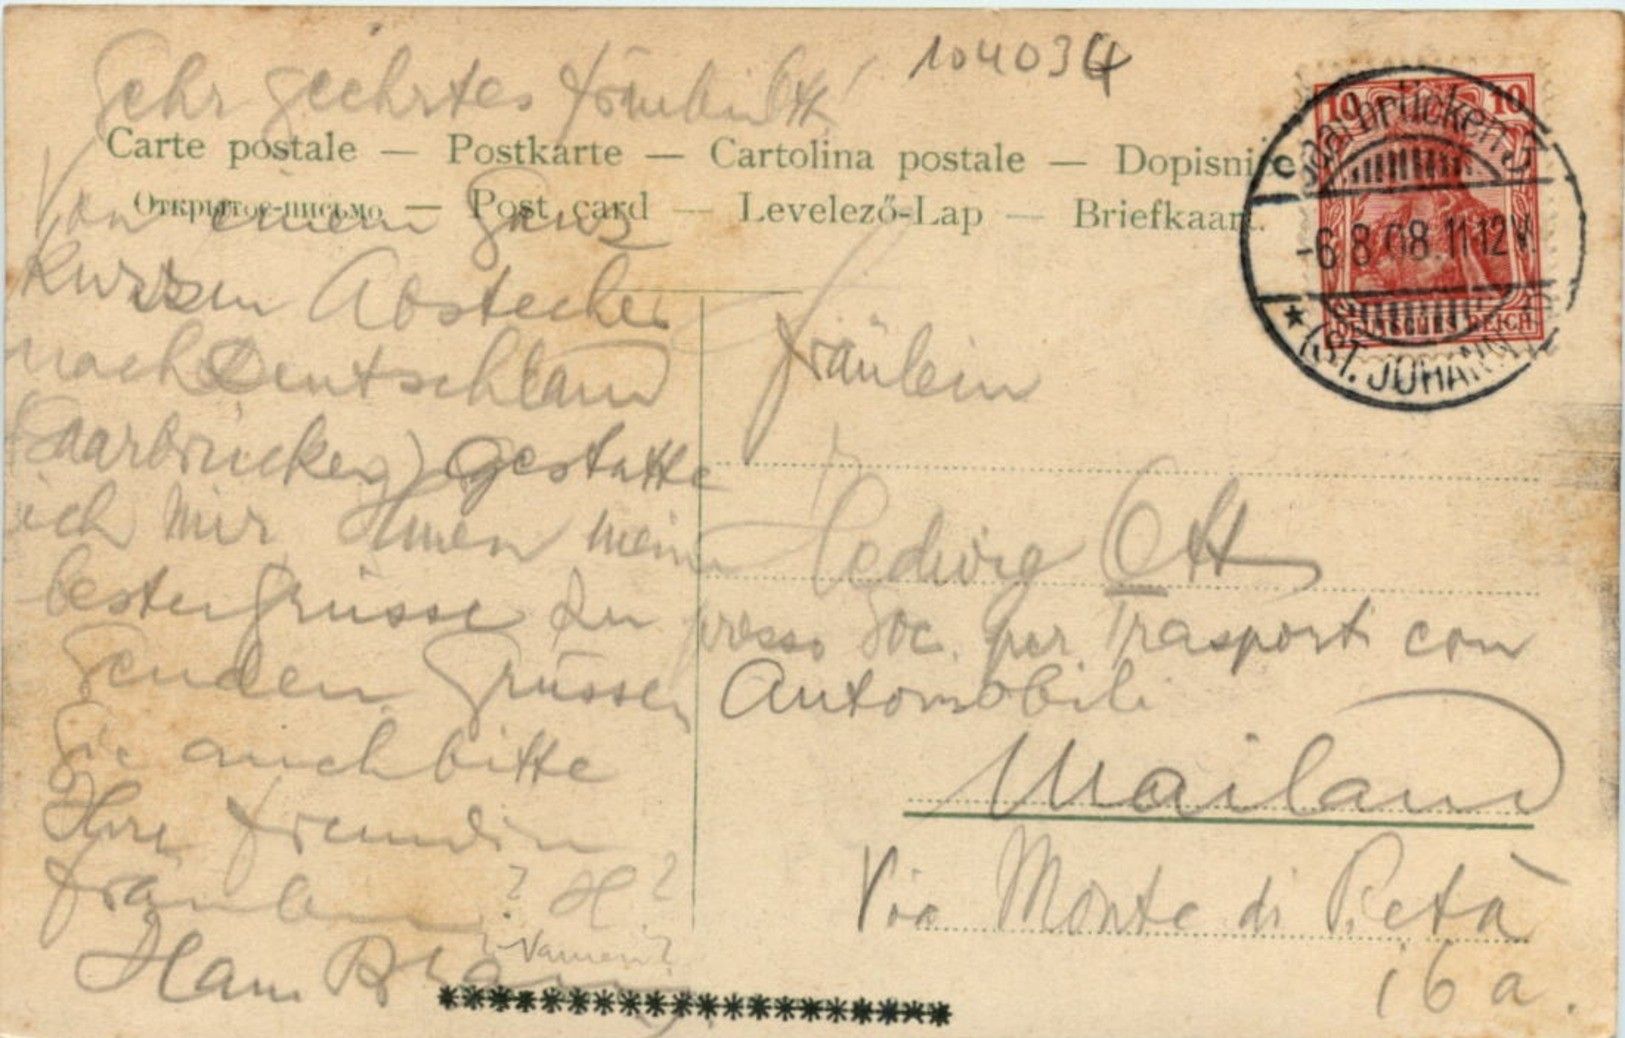 104034
Sehr geehrtes Fräulein Ott
Carte postale — Postkarte — Cartolina postale — Dopisnice
Открытое-письмо — Post card — Levelező-Lap — Briefkaart.
Von einem Ganz
Kurzen Abstecher
nach Deutschland
(Saarbrücken) gestatte
ich mir Ihnen meine
besten Grüsse zu
senden. Grüssen
Sie auch bitte
Ihre Freundin
Fräulein ? H. ?
? Namen ?
Hans
Fräulein
Hedwig Ott
presso Soc. per Trasporti con
Automobili
Mailand
Via Monte di Pietà
16 a.
10 10
DEUTSCHES REICH
Saarbrücken 5
-6.8.08.11-12V.
* (ST. JOHANN)